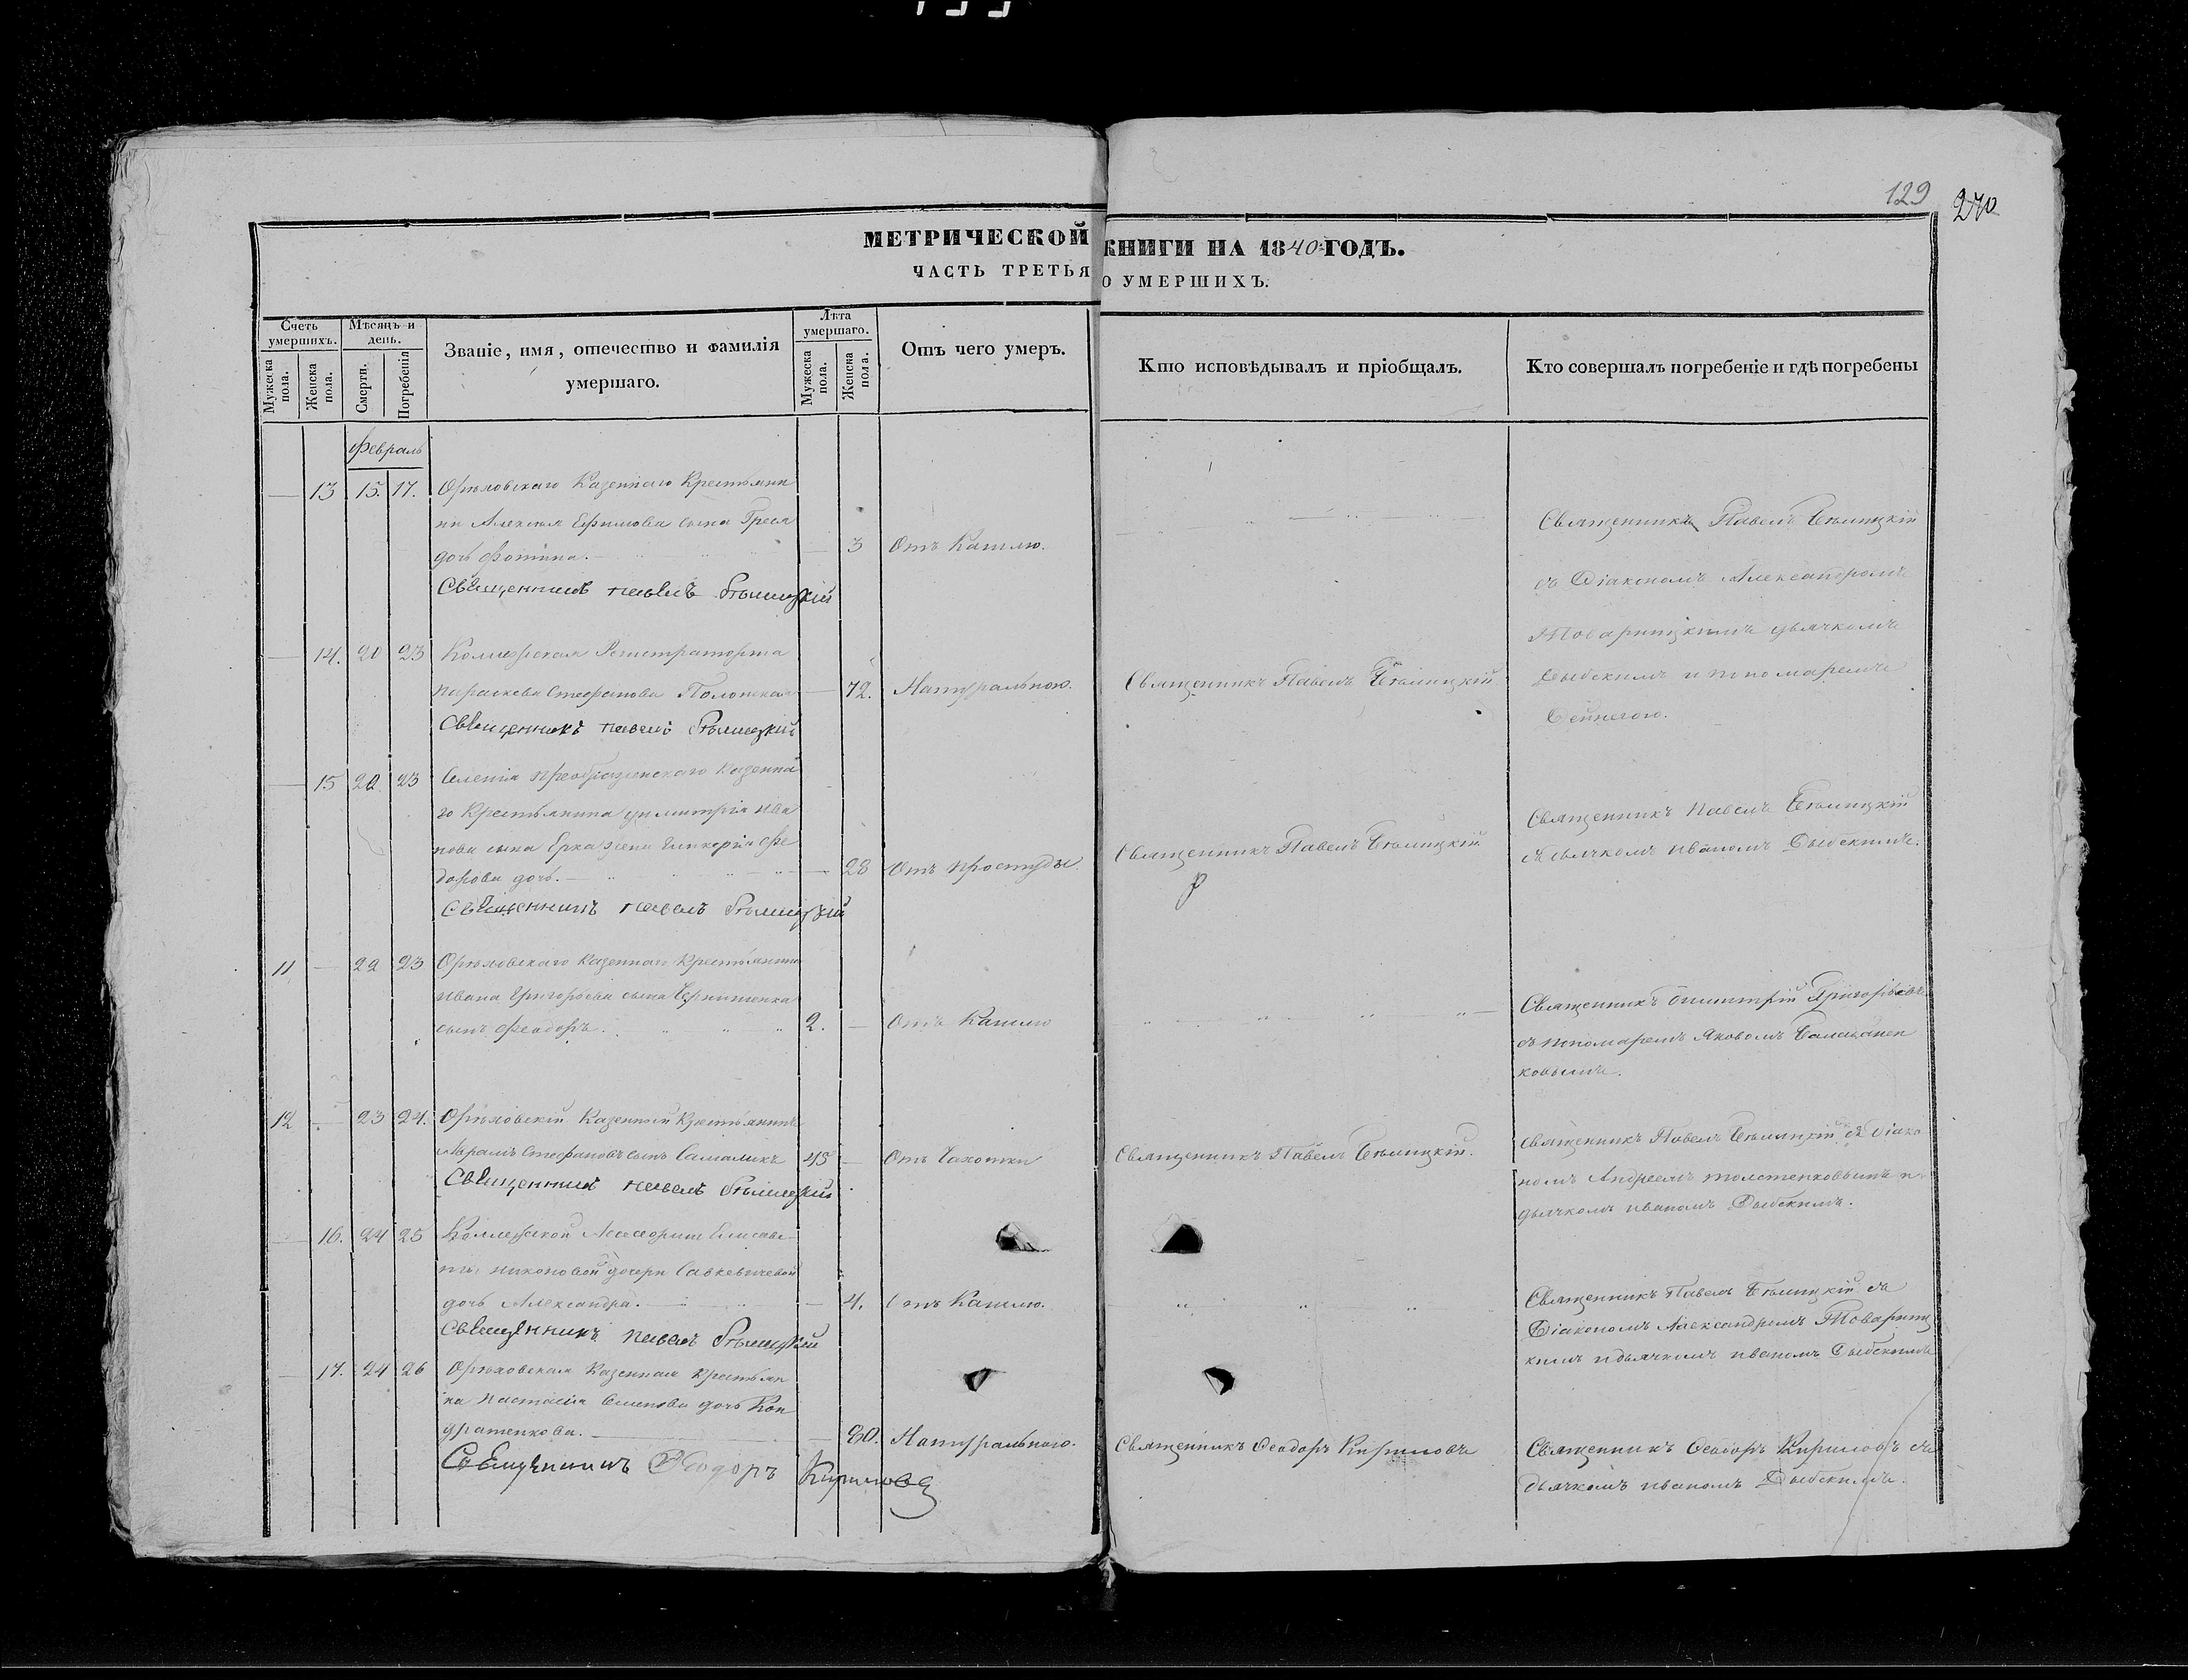 129 270
МЕТРИЧЕСКОЙ КНИГИ НА 1840 ГОДЪ.
ЧАСТЬ ТРЕТЬЯ О УМЕРШИХЪ.
Счетъ умершихъ.
Мужеска пола.
Женска пола.
Мѣсяцъ и день.
Смерти.
Погребенія
Званіе, имя, отечество и фамилія
умершаго.
Лѣта умершаго.
Мужеска пола.
Женска пола.
Отъ чего умеръ.
Кто исповѣдывалъ и пріобщалъ.
Кто совершалъ погребеніе и гдѣ погребены
Февраль
13 15. 17. Орѣховскаго Казеннаго Крестьяни
на Алексея Ефимова сына
дочь Фотина. 3 Отъ Кашлю.
Священникъ Павелъ Бѣлицкій
Священникъ Павелъ Бѣлицкій
съ Діакономъ Александромъ
Товарницкимъ дьячкомъ
Дыбскимъ и пономаремъ
14. 20 23 Колежская Регистраторша
Параскева Стефанова Полонская 72. Натуральною. Священникъ Павелъ Бѣлицкій
Священникъ Павелъ Бѣлицкій
15 20 23 Селенія Преображенскаго Казенна
го Крестьянина Димитрія Ива
нова сына жена Гликерія Фе
дорова дочь. 28 Отъ простуды Священникъ Павелъ Бѣлицкій
Священникъ Павелъ Бѣлицкій
Священникъ Павелъ Бѣлицкій
съ дьячкомъ Иваномъ Дыбскимъ.
11 22 23 Орѣховскаго Казеннаго Крестьянина
Ивана Григорьева сына
сынъ Феодоръ. 2. Отъ Кашлю
Священникъ Димитрій Григорьевъ
съ пономаремъ Яковомъ
ковымъ.
12 23 24. Орѣховскій Казенный Крестьянинъ
Абрамъ Стефановъ сынъ 45 Отъ Чахотки Священникъ Павелъ Бѣлицкій.
Священникъ Павелъ Бѣлицкій
Священникъ Павелъ Бѣлицкій съ Діако
номъ Андреемъ Толстенковымъ и
дьячкомъ Иваномъ Дыбскимъ.
16. 24 25 Коллежской Ассесорши Елисаве
ты Никоновой дочери Савкевичевой
дочь Александра. 4. Отъ Кашлю.
Священникъ Павелъ Бѣлицкій
Священникъ Павелъ Бѣлицкій съ
Діакономъ Александромъ Товарниц
кимъ и дьячкомъ Иваномъ Дыбскимъ
17. 24 26 Орѣховская Казенная Крестьян
ка Настасія Семенова дочь Кон
дратенкова. 80. Натуральною. Священникъ Феодоръ Кириловъ
Священникъ Феодоръ Кириловъ
Священникъ Феодоръ Кириловъ съ
дьячкомъ Иваномъ Дыбскимъ.